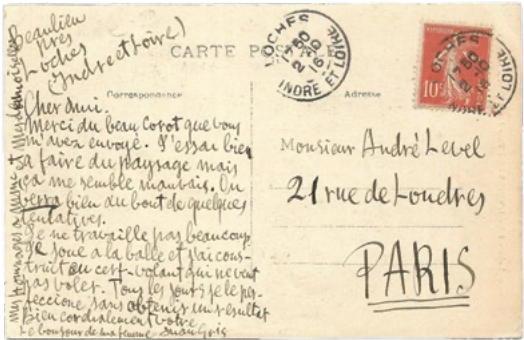 Beaulieu
près
Loches
(Indre et Loire)
CARTE POSTALE
Correspondance
Adresse
LOCHES
17 50
2 10
16
INDRE ET LOIRE
10c
Cher ami.
Merci du beau Corot que vous
m'avez envoyé. J'essai bien
de faire du paysage mais
ça me semble mauvais. On
verra bien du bout de quelques
tentatives.
Je ne travaille pas beaucoup
je joue a la balle et j'ai cons-
truit un cerf-volant qui ne veut
pas voler. Tous les jours je le per-
feccione sans obtenir un resultat
Bien cordialement votre
Le bonjour de ma femme Juan Gris
Mes hommages a Mme et Mesdemoiselles
Monsieur André Level
21 rue de Londres
PARIS